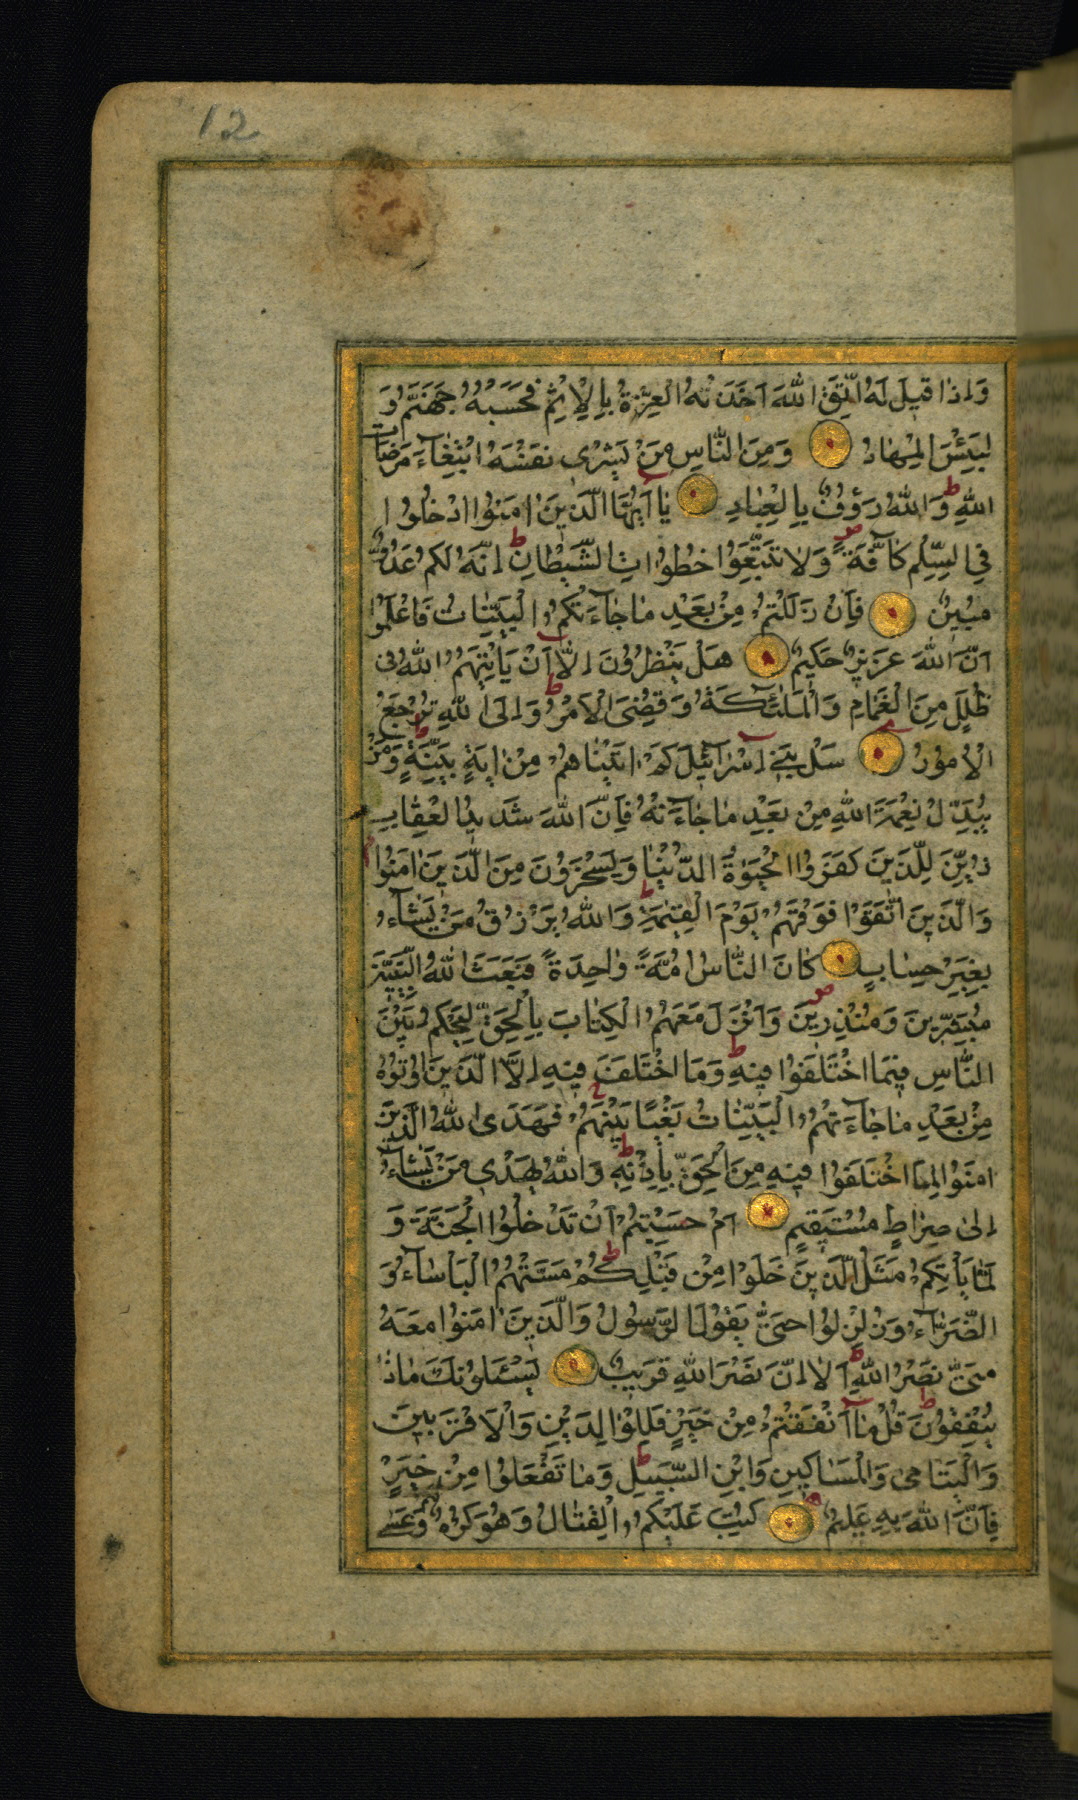 12
وَاِذَا قيلَ لَهُ اتَّقِ اللّٰهَ اَخَذَتْهُ الْعِزَّةُ بِالْاِثْمِ فَحَسْبُهُ جَهَنَّمُ وَ
لَبِئْسَ الْمِهَادُ وَمِنَ النَّاسِ مَنْ يَشْرى نَفْسَهُ ابْتِغَاۤءَ مَرْضَاتِ
اللّٰهِ ط وَاللّٰهُ رَؤُفٌ بِالْعِبَادِ يَاۤ اَيُّهَا الَّذينَ اٰمَنُوا ادْخُلُوا
فِي السِّلْمِ كَاۤفَّةً ص وَلَا تَتَّبِعُوا خُطُوَاتِ الشَّيْطَانِ ط اِنَّهُ لَكُمْ عَدُوٌّ
مُبينٌ فَاِنْ زَلَلْتُمْ مِنْ بَعْدِ مَا جَاۤءَتْكُمُ الْبَيِّنَاتُ فَاعْلَمُوا
اَنَّ اللّٰهَ عَزيزٌ حَكيمٌ هَلْ يَنْظُرُونَ اِلَّاۤ اَنْ يَاْتِيَهُمُ اللّٰهُ فى
ظُلَلٍ مِنَ الْغَمَامِ وَالْمَلٰۤئِكَةُ وَقُضِىَ الْاَمْرُ ط وَاِلَى اللّٰهِ تُرْجَعُ
الْاُمُورُ سَلْ بَنى اِسْرَاۤئيلَ كَمْ اٰتَيْنَاهُمْ مِنْ اٰيَةٍ بَيِّنَةٍ ط وَمَنْ
يُبَدِّلْ نِعْمَةَ اللّٰهِ مِنْ بَعْدِ مَا جَاۤءَتْهُ فَاِنَّ اللّٰهَ شَديدُ الْعِقَابِ
زُيِّنَ لِلَّذينَ كَفَرُوا الْحَيٰوةُ الدُّنْيَا وَيَسْخَرُونَ مِنَ الَّذينَ اٰمَنُوا م
وَالَّذينَ اتَّقَوْا فَوْقَهُمْ يَوْمَ الْقِيٰمَةِ ط وَاللّٰهُ يَرْزُقُ مَنْ يَشَاۤءُ
بِغَيْرِ حِسَابٍ كَانَ النَّاسُ اُمَّةً وَاحِدَةً فَبَعَثَ اللّٰهُ النَّبِيّنَ
مُبَشِّرينَ وَمُنْذِرينَ ص وَاَنْزَلَ مَعَهُمُ الْكِتَابَ بِالْحَقِّ لِيَحْكُمَ بَيْنَ
النَّاسِ فيمَا اخْتَلَفُوا فيهِ ط وَمَا اخْتَلَفَ فيهِ اِلَّا الَّذينَ اُوتُوهُ
مِنْ بَعْدِ مَا جَاۤءَتْهُمُ الْبَيِّنَاتُ بَغْيًا بَيْنَهُمْ ج فَهَدَى اللّٰهُ الَّذينَ
اٰمَنُوا لِمَا اخْتَلَفُوا فيهِ مِنَ الْحَقِّ بِاِذْنِهِ ط وَاللّٰهُ يَهْدى مَنْ يَشَاۤءُ
اِلٰى صِرَاطٍ مُسْتَقيمٍ اَمْ حَسِبْتُمْ اَنْ تَدْخُلُوا الْجَنَّةَ وَ
لَمَّا يَاْتِكُمْ مَثَلُ الَّذينَ خَلَوْا مِنْ قَبْلِكُمْ ط مَسَّتْهُمُ الْبَاْسَاۤءُ وَ
الضَّرَّاۤءُ وَزُلْزِلُوا حَتّٰى يَقُولَ الرَّسُولُ وَالَّذينَ اٰمَنُوا مَعَهُ
مَتٰى نَصْرُ اللّٰهِ ط اَلَا اِنَّ نَصْرَ اللّٰهِ قَريبٌ يَسْئَلُونَكَ مَاذَا
يُنْفِقُونَ ط قُلْ مَاۤ اَنْفَقْتُمْ مِنْ خَيْرٍ فَلِلْوَالِدَيْنِ وَالْاَقْرَبينَ
وَالْيَتَامٰى وَالْمَسَاكينِ وَابْنِ السَّبيلِ ط وَمَا تَفْعَلُوا مِنْ خَيْرٍ
فَاِنَّ اللّٰهَ بِهِ عَليمٌ كُتِبَ عَلَيْكُمُ الْقِتَالُ وَهُوَ كُرْهٌ لَكُمْ وَعَسٰى